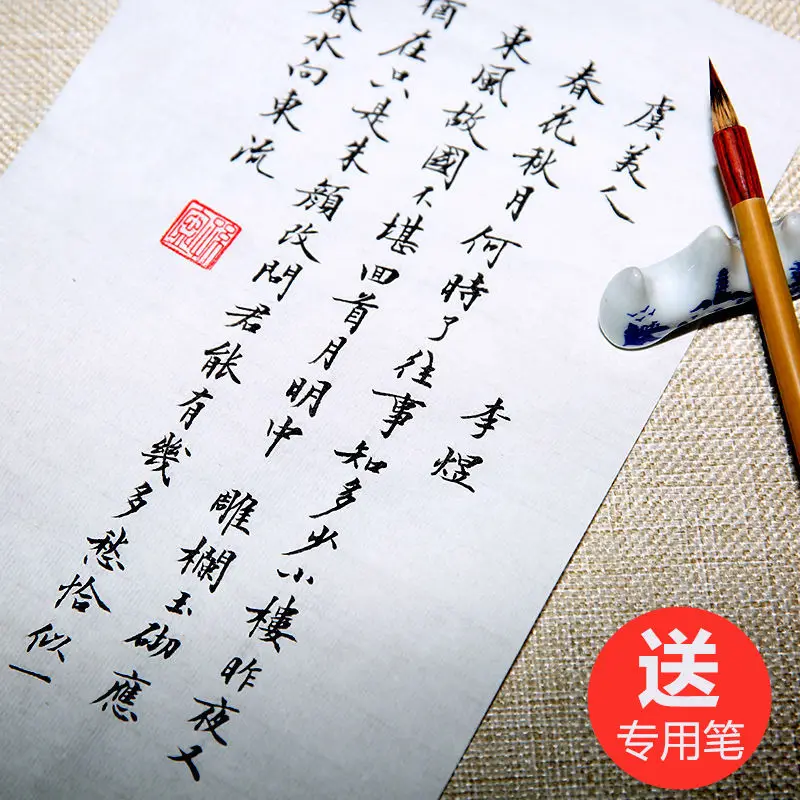 虞美人 李煜
春花秋月何時了往事知多少小樓昨夜又
東風故國不堪回首月明中雕欄玉砌應
猶在只是朱顏改問君能有幾多愁恰似一
春水向東流
送
专用笔